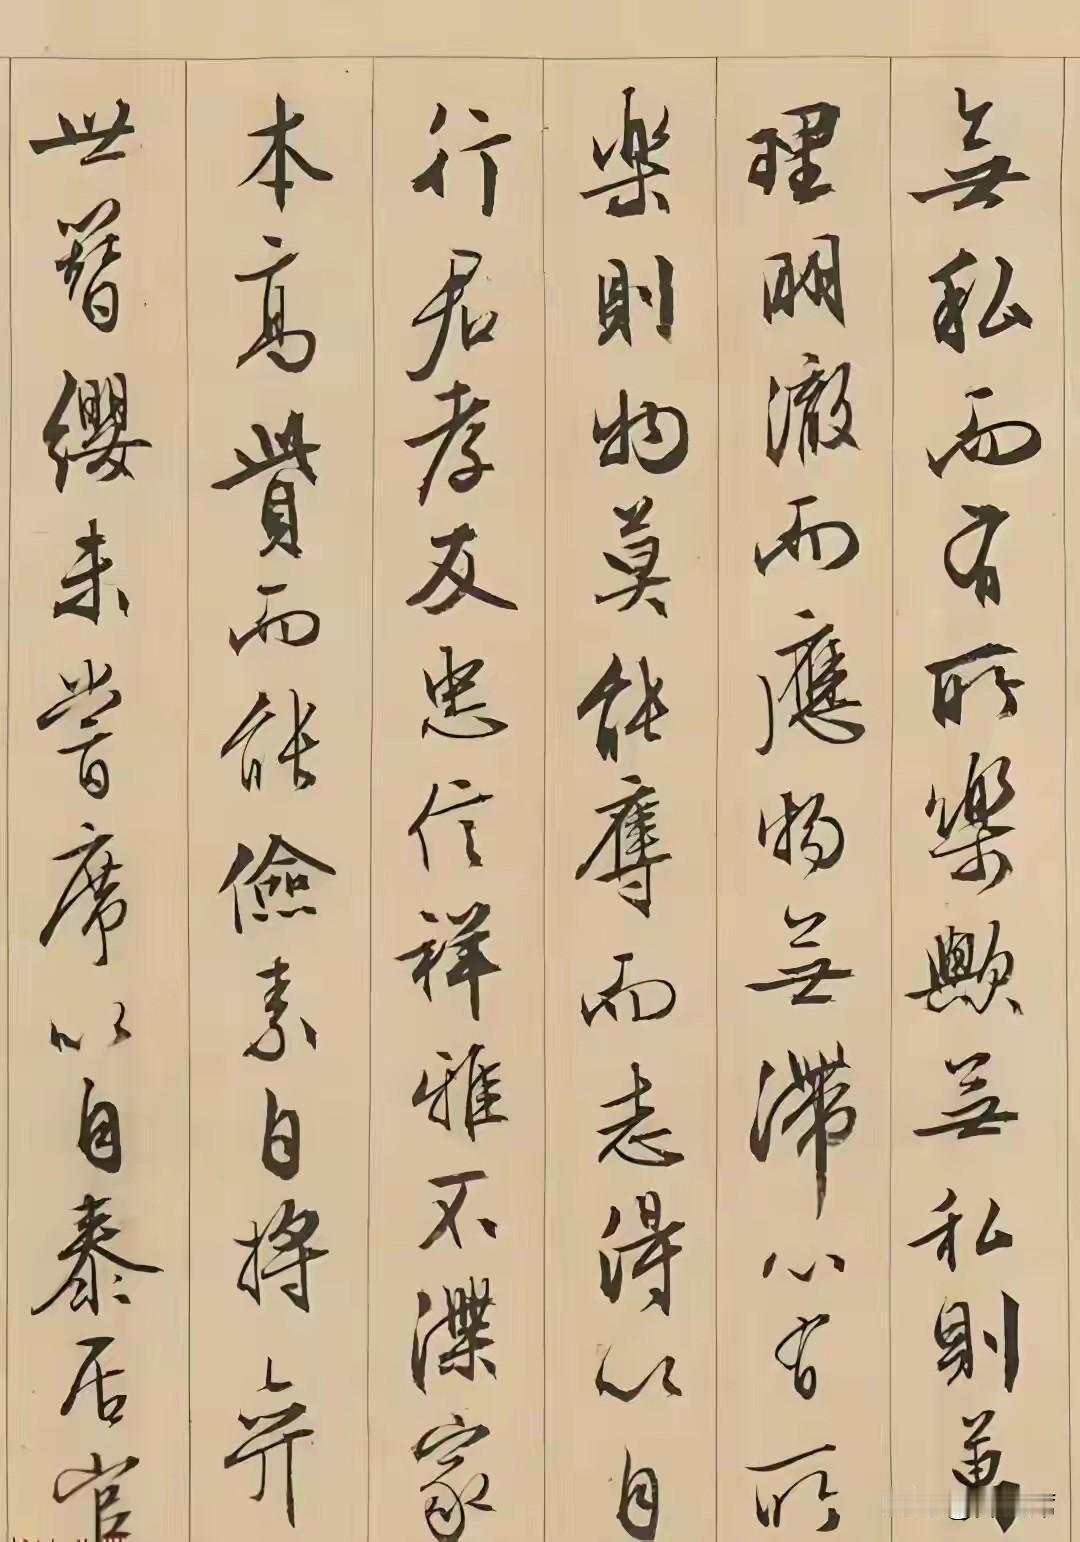 無私而有所樂歟無私則萬
理明澈而應物無滯心有所
樂則物莫能奪而志得以自
行君孝友忠信祥雅不渫家
本高貲而能儉素自將㒰
世簪纓未嘗席以自泰居官